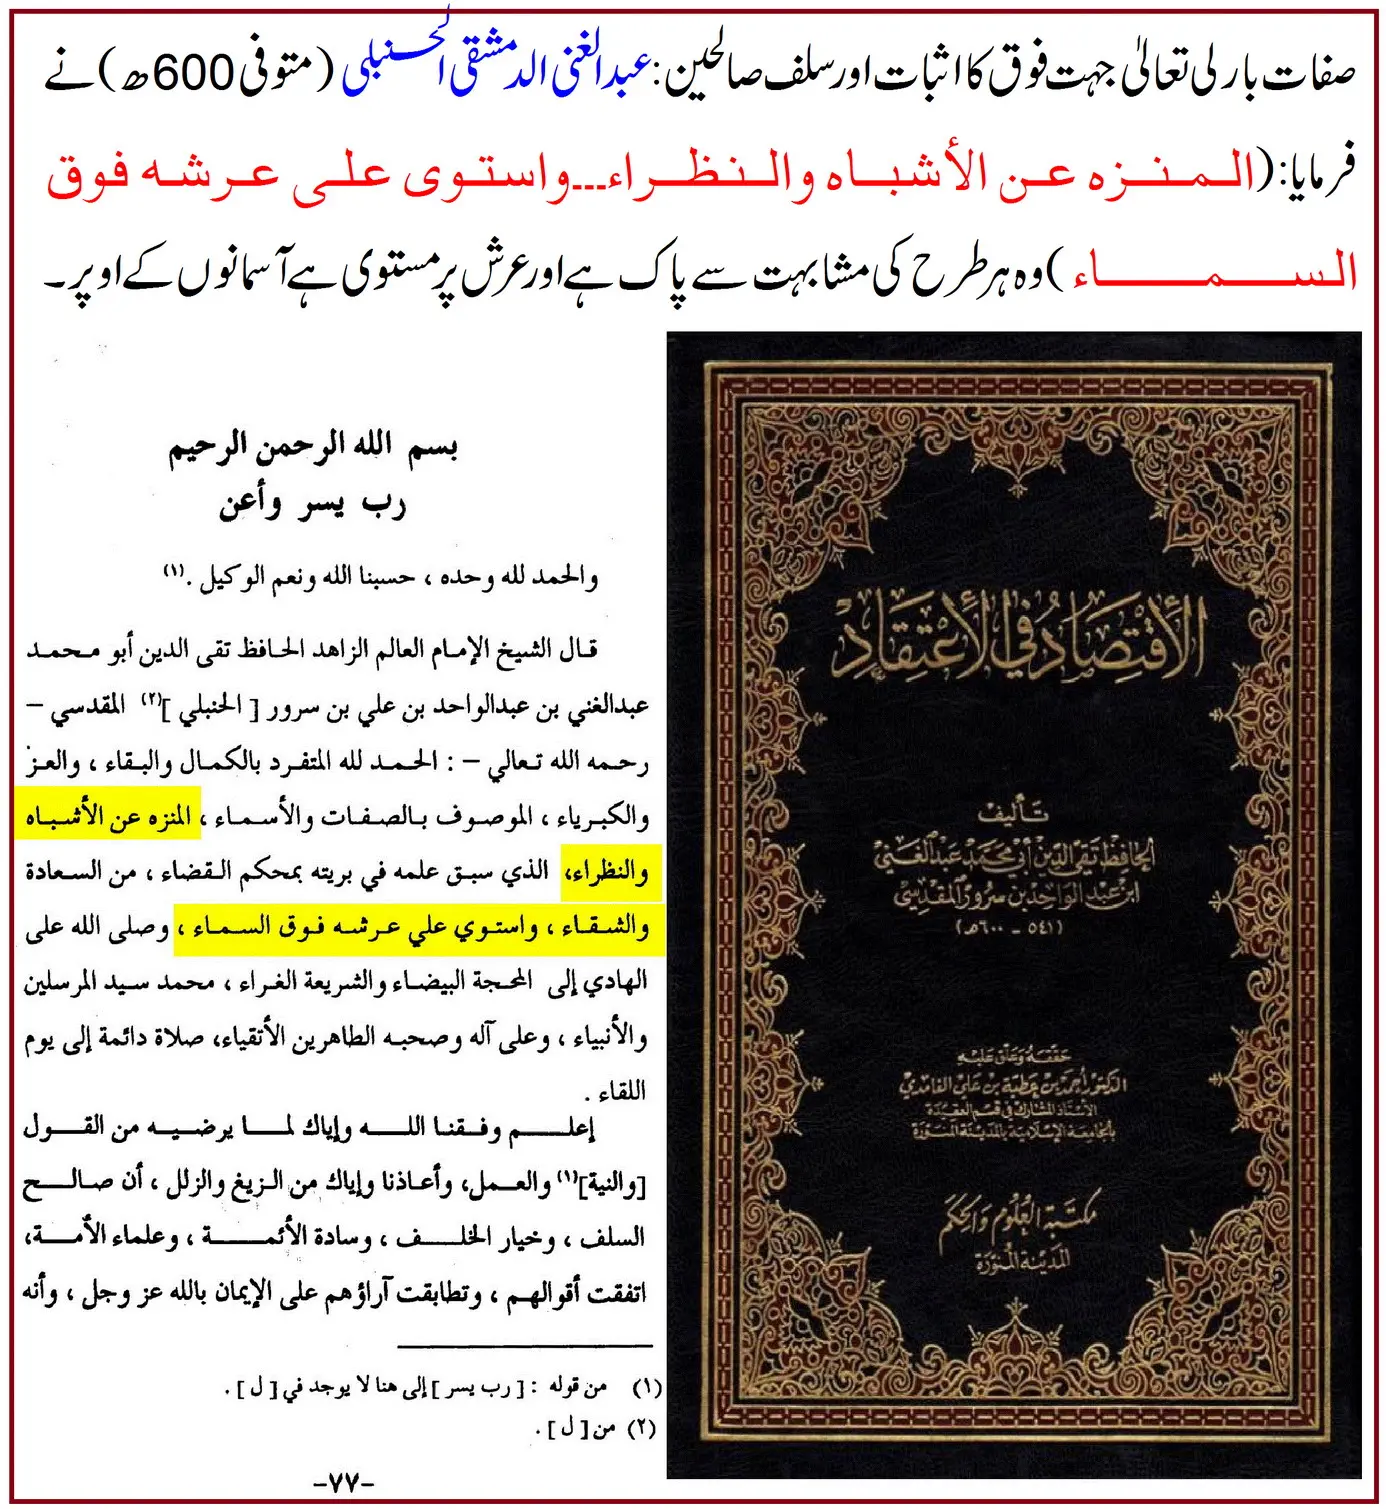 صفات باری تعالیٰ جہت فوق کا اثبات اور سلف صالحین: عبدالغنی الدمشقی الحنبلی (متوفی 600ھ) نے
فرمایا: (المنزه عن الأشباه والنظراء---واستوى على عرشه فوق
السماء) وہ ہر طرح کی مشابہت سے پاک ہے اور عرش پر مستوی ہے آسمانوں کے اوپر۔
بسم الله الرحمن الرحيم
رب يسر وأعن
والحمد لله وحده ، حسبنا الله ونعم الوكيل .(١)
قال الشيخ الإمام العالم الزاهد الحافظ تقى الدين أبو محمد
عبدالغني بن عبدالواحد بن علي بن سرور [ الحنبلي ](٢) المقدسي –
رحمه الله تعالي – : الحمد لله المتفرد بالكمال والبقاء ، والعز
والكبرياء ، الموصوف بالصفات والأسماء ، المنزه عن الأشباه
والنظراء، الذي سبق علمه في بريته بمحكم القضاء ، من السعادة
والشقاء ، واستوي علي عرشه فوق السماء ، وصلى الله على
الهادي إلى المحجة البيضاء والشريعة الغراء ، محمد سيد المرسلين
والأنبياء ، وعلى آله وصحبه الطاهرين الأتقياء، صلاة دائمة إلى يوم
اللقاء .
إعلم وفقنا الله وإياك لما يرضيه من القول
[والنية](١) والعمل، وأعاذنا وإياك من الزيغ والزلل ، أن صالح
السلف ، وخيار الخلف ، وسادة الأئمة ، وعلماء الأمة،
اتفقت أقوالهم ، وتطابقت آراؤهم على الإيمان بالله عز وجل ، وأنه
(١) من قوله : [ رب يسر ] إلى هنا لا يوجد في [ ل ] .
(٢) من [ ل ] .
-٧٧-
الاقتصاد في الاعتقاد
تأليف
الحافظ تقي الدين أبي محمد عبد الغني
ابن عبد الواحد بن سرور المقدسي
(٥٤١ - ٦٠٠هـ)
حققه وعلق عليه
الدكتور أحمد بن عطية بن علي الغامدي
الأستاذ المشارك في قسم العقيدة
بالجامعة الإسلامية بالمدينة المنورة
مكتبة العلوم والحكم
المدينة المنورة